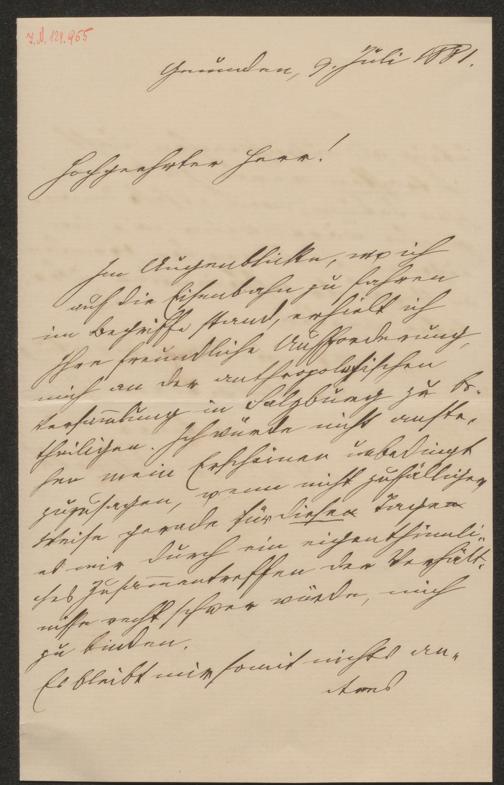 I.N. 121.955
Gmunden, 9. Juli 1881.
Hochgeehrter Herr!
Im Augenblicke, wo ich
auf die Eisenbahn zu fahren
im Begriffe stand, erhielt ich
Ihre freundliche Aufforderung,
mich an der anthropologischen
Versammlung in Salzburg zu be-
theiligen. Ich würde nicht anste-
hen mein Erscheinen unbedingt
zuzusagen, wenn nicht zufälliger
Weise gerade für diese Tage
es mir durch ein eigenthümli-
ches Zusammentreffen der Verhält-
nisse recht schwer würde, mich
zu binden.
Es bleibt mir somit nichts an-
deres